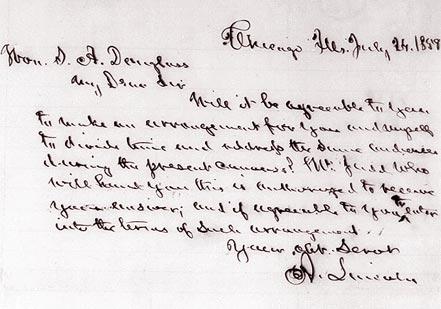 Chicago, Ills. July 24, 1858
Hon. S. A. Douglas
My Dear Sir
Will it be agreeable to you
to make an arrangement for you and myself
to divide time and address the same audiences
during the present canvass? Mr. Judd, who
will hand you this is authorized to receive
your answer; and if agreeable to you, to enter
into the terms of such arrangement
Your Obt. Servt
A. Lincoln